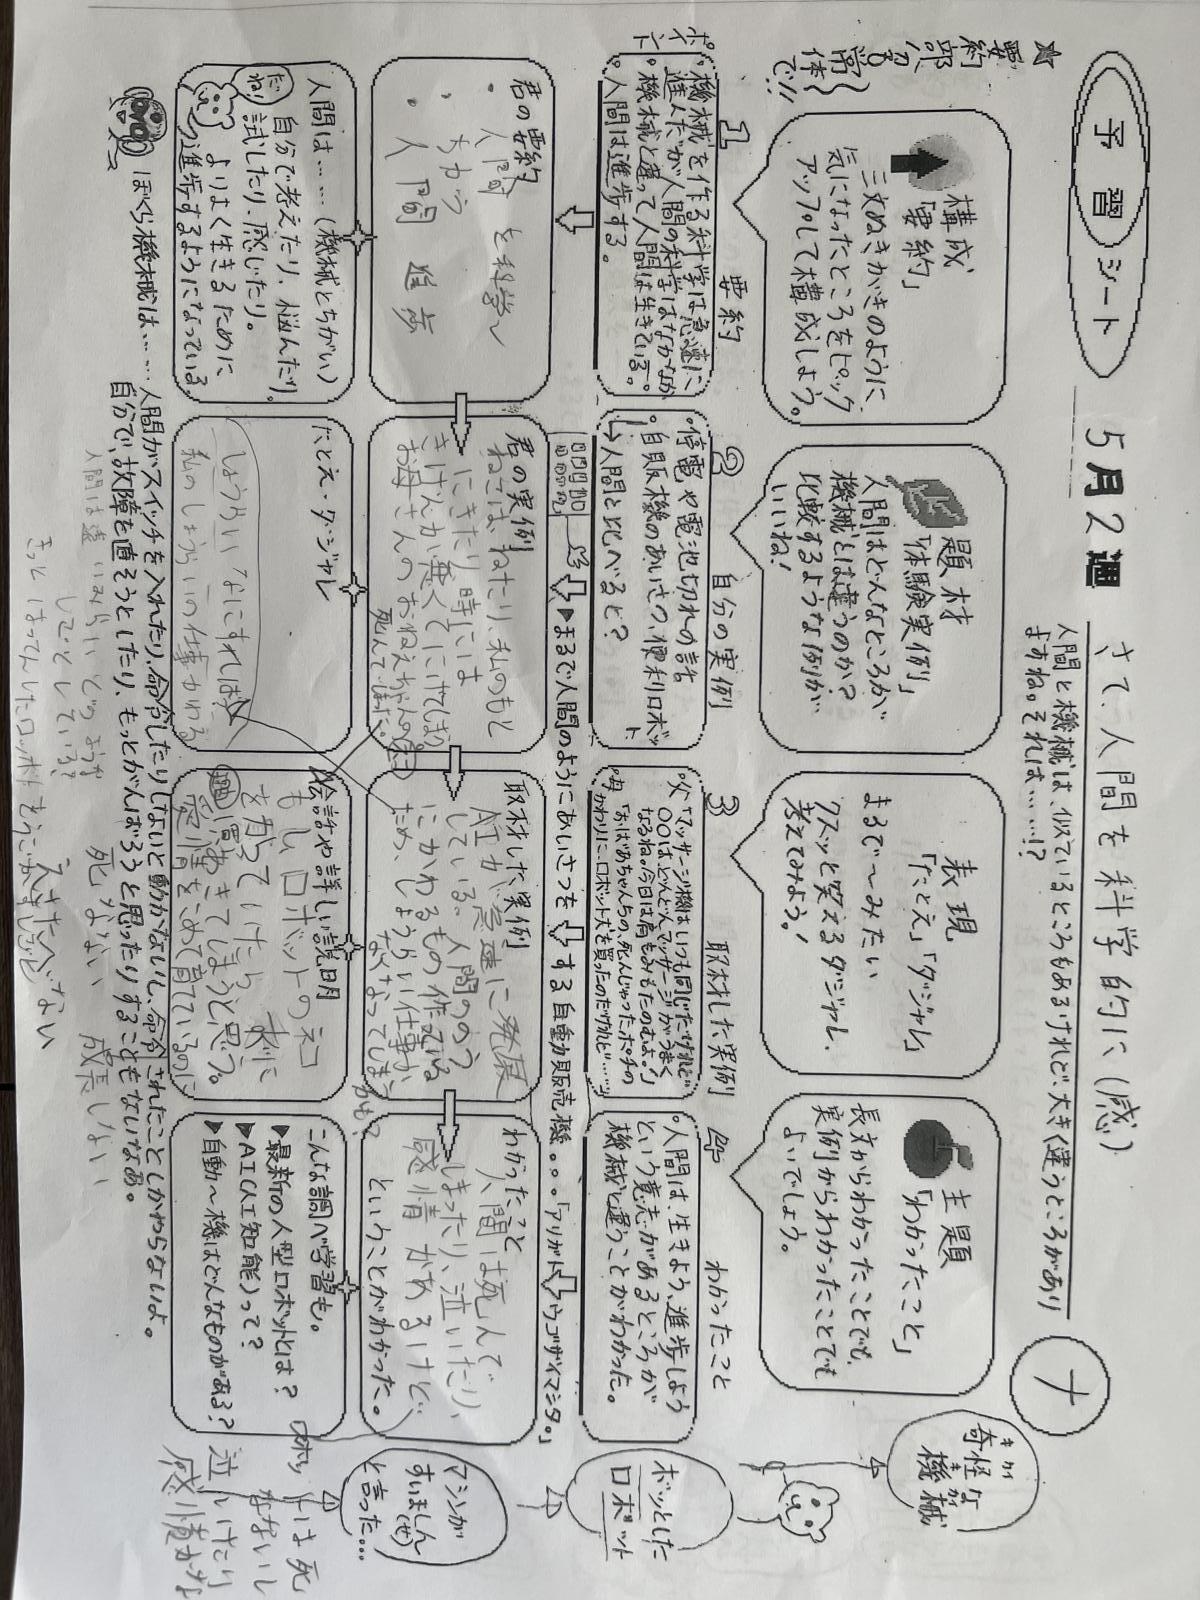 予習シート
5月2週
さて、人間を科学的に(感)
人間と機械は、似ているところもあるけれど、大き(違うところがあり
ますね。それは……!?
ナ
★要約部分は
常体で!!
構成
「要約」
三文ぬきがきのように
気になったところをピック
アップして構成しよう。
題材
「体験実例」
人間はどんなところが
機械とは違うのか?
比較するような例が
いいね!
表現
「たとえ」「ダジャレ」
まるで〜みたい
クスッと笑えるダジャレ
考えてみよう!
主題
「わかったこと」
長文からわかったことでも、
実例からわかったことでも
よいでしょう。
奇怪な
機械
1
要約
2
自分の実例
3
取材した実例
4
わかったこと
ポイント
・機械を作る科学は急速に
進んだが人間の科学はなかなか
・機械と違って人間は生きている。
・人間は進歩する。
・停電や電池切れの話
・自販機のあいさつ、便利ロボット
→人間と比べると?
・父「マッサージ機はいつも同じだけれど
〇〇はどんどんマッサージがうまく
なるね。今日は肩もみもたのむよ!」
・母「おばあちゃんちの、死んじゃったポチの
かわりに、ロボット犬を買ったのだけれど……
・人間は、生きよう、進歩しよう
という意志があるところが
機械と違うことがわかった。
ボッとした
ロボット
▶まるで人間のようにあいさつをする自動販売機。。。「アリガトウゴザイマシタ。」
君の要約
・人間を科学〜
・ちがう
・人間 進歩
君の実例
ねこは、ねたり、私のもと
にきたり時には
きげんが悪くてにげてしまう。
お母さんのおねえちゃんの
死んで
取材した実例
AIが急速に発展
している、人間ののう?
にかわるもの作っている
ため、しょうらい仕事が
なくなってしまう
かも?
わかったこと
人間は死んで
しまったり、泣いたり、
感情があるけど…
ということがわかった。
マシンが
すいましん(せ)
と言った…
人間は……(機械とちがい)
自分で考えたり、悩んだり、
試したり、感じたり。
よりよく生きるために
進歩するようになっている
だね!
たとえ・ダジャレ
しょうらいなにすれば
私のしょうらいの仕事かわる
会話や詳しい説明
もしロボットのネコ
を飼っていたら
あきてしまうと思う。
愛情をこめて育てているのに
こんな調べ学習も。
▶最新の人型ロボットとは?
▶AI(人工知能)って?
▶自動〜機はどんなものがある?
ロボットは死
なないし
泣いたり
感情がな
ぼくら機械は……人間がスイッチを入れたり、命令したりしないと動かないし、命令されたことしかやらないよ。
自分で、故障を直そうとしたり、もっとがんばろうと思ったりすることもないなあ。
人間は遠いみらい どのような
しごとをしている?
死なない 成長しない
きっとはってんしたロボットを
えさたべない